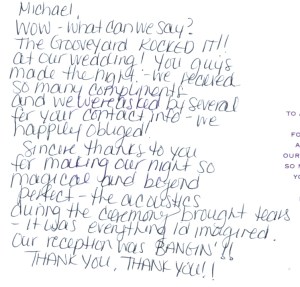 Michael,
WOW - what can we say?
The Grooveyard ROCKED IT!!
at our wedding! You guys
made the night - we received
so many compliments
and we were asked by several
for your contact info - we
happily obliged!
Sincere thanks to you
for making our night so
magical and beyond
perfect - the acoustics
during the ceremony brought tears
- it was everything I'd imagined.
Our reception was BANGIN'!!
THANK YOU, THANK YOU!!
TO A
FO
A
OUR
SO M
Y